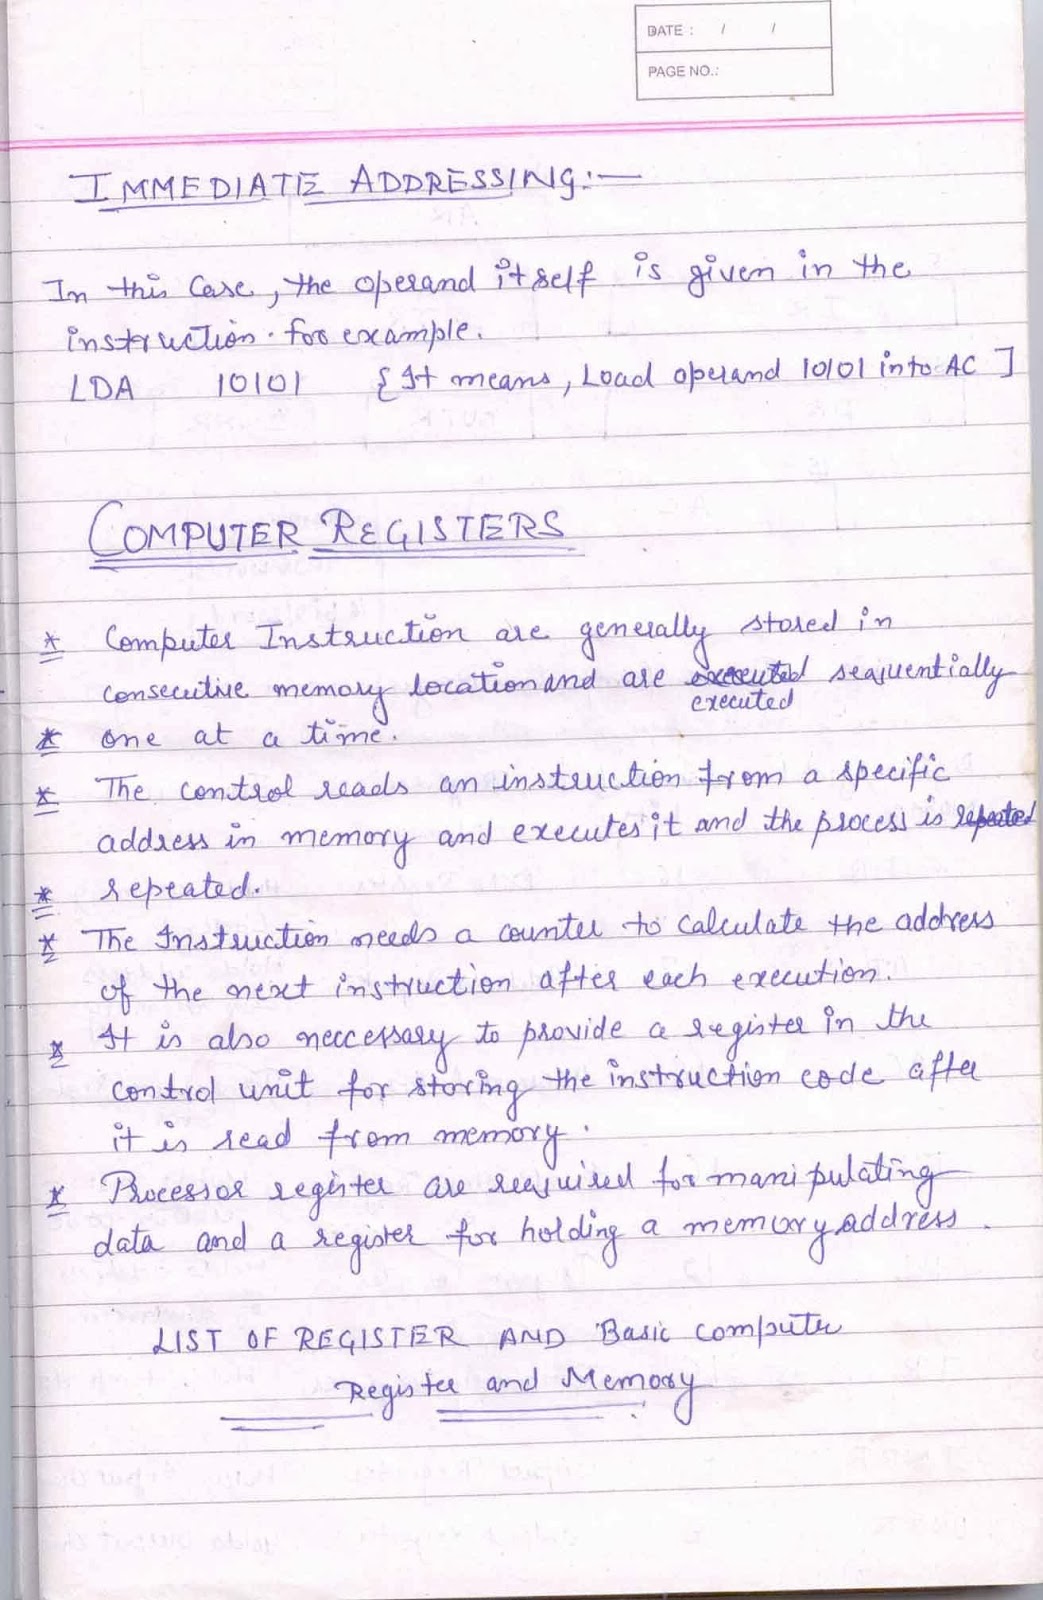 DATE : / /
PAGE NO.:
IMMEDIATE ADDRESSING:—
In this Case, the operand itself is given in the
instruction. for example.
LDA 10101 {It means, Load operand 10101 into AC ]
COMPUTER REGISTERS
* Computer Instruction are generally stored in
consecutive memory location and are executed seaquentially
executed
* one at a time.
* The control reads an instruction from a specific
address in memory and executes it and the process is repeated
* repeated.
* The Instruction needs a counter to calculate the address
of the next instruction after each execution.
* It is also neccessary to provide a register in the
control unit for storing the instruction code after
it is read from memory.
* Processor register are reaquired for manipulating
data and a register for holding a memory address.
LIST OF REGISTER AND Basic computer
Register and Memory